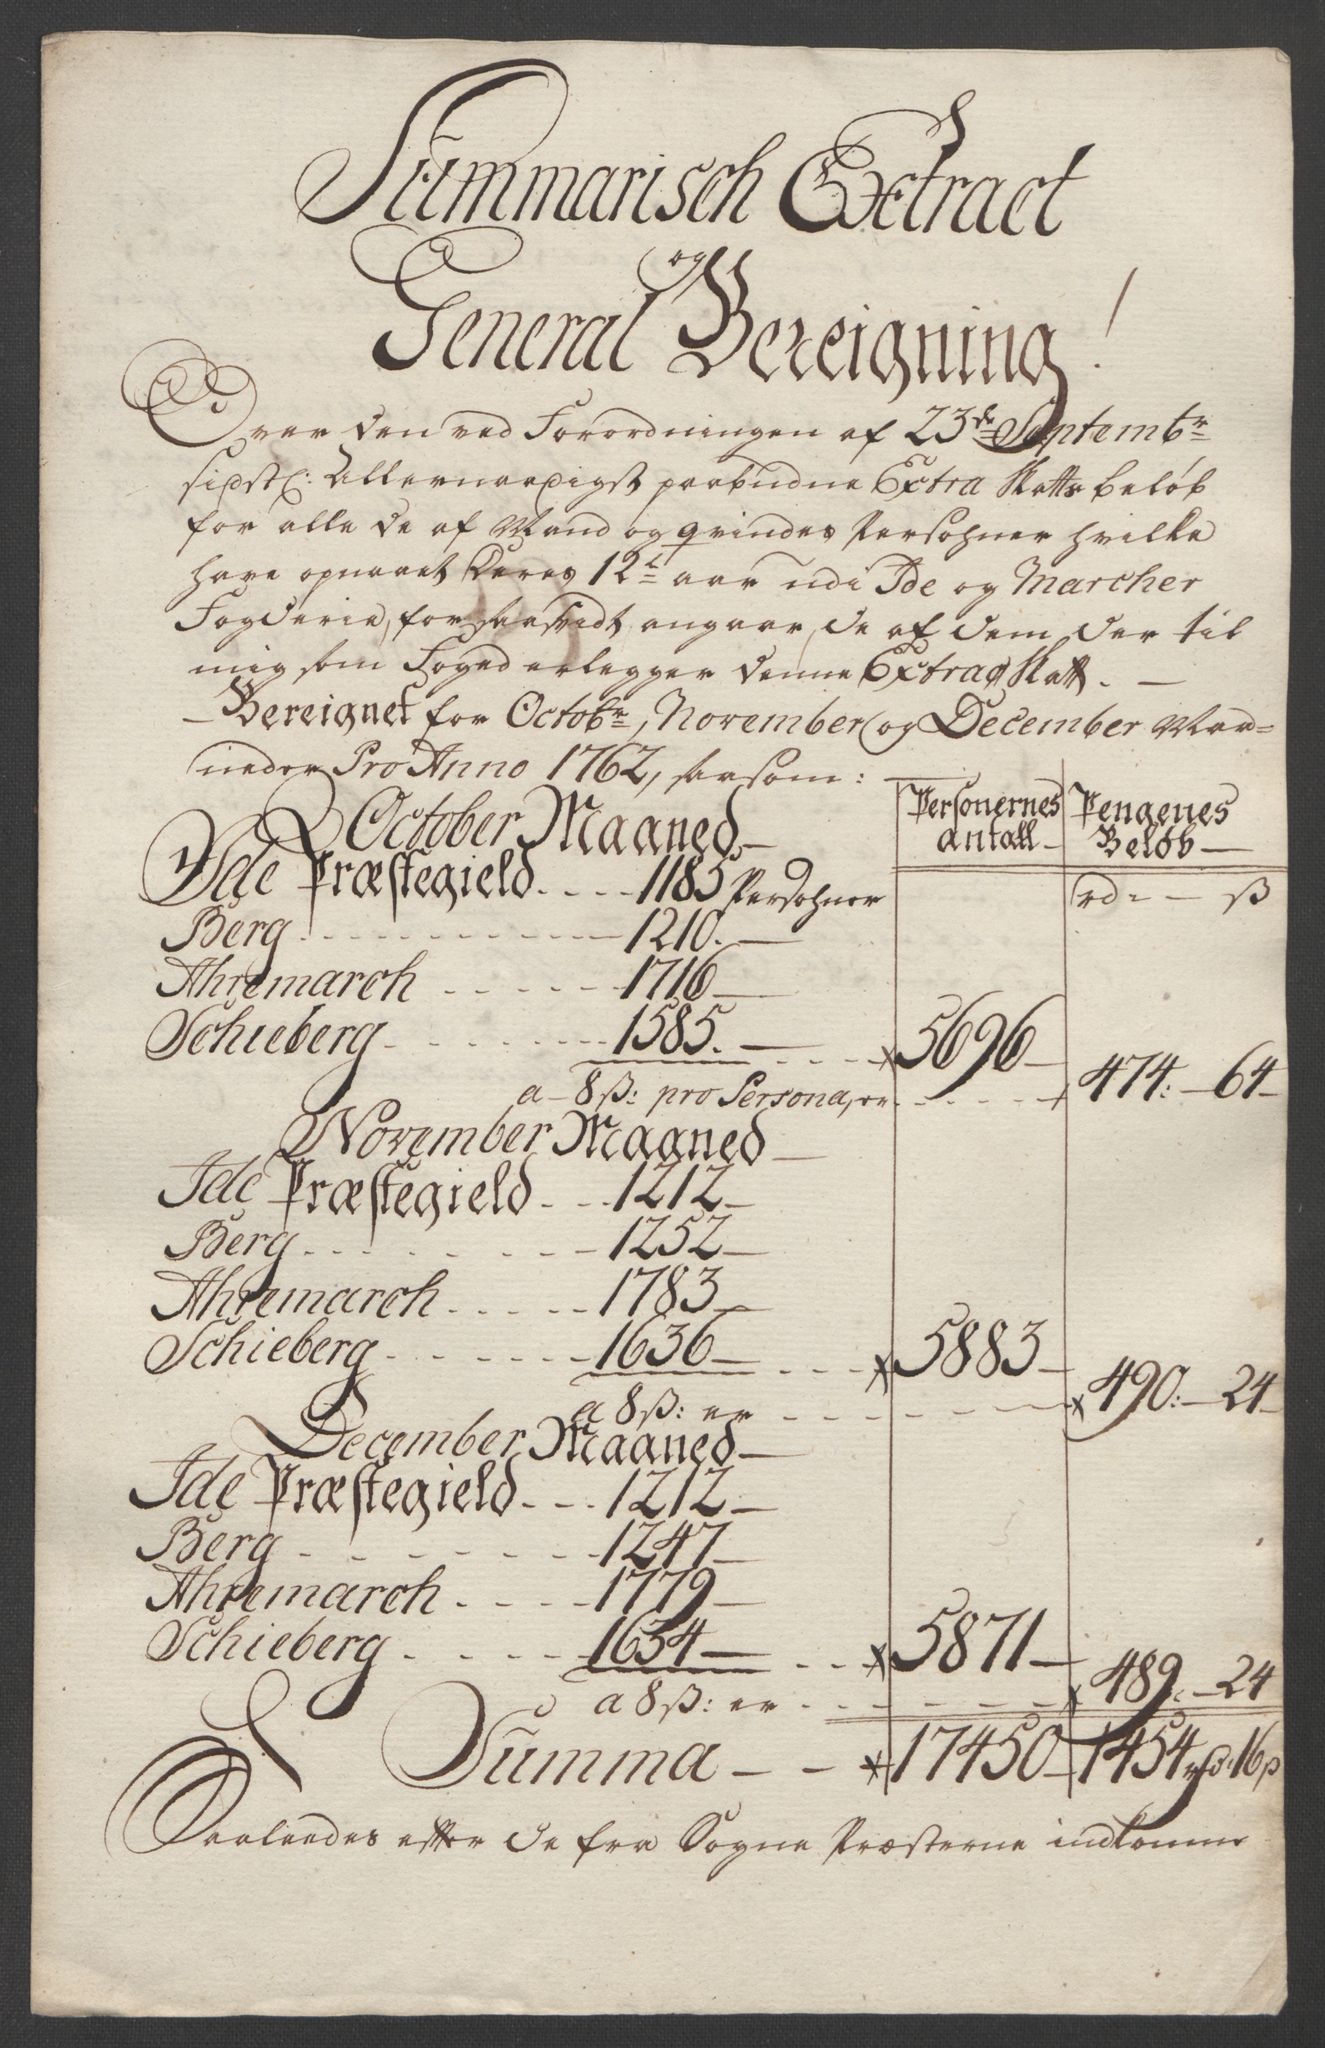 Summarisch Extract
og
General Bereigning!
Over den ved Forordningen af 23de Septembr
sidstl: Allernaadigst paabudne Extra Skatts beløb
for alle de af Mand og qvindes Persohner hvilke
have opnaaet Deres 12te aar udi Ide og Marcher
Fogderie, for saavidt angaar, de af dem der til
mig som Foged erlegger denne Extra Skatt. —
— Bereignet for Octobr, November og December Maa-
neder Pro Anno 1762, saasom: —
Personernes antall — Pengenes Beløb —
October Maaned —
Ide Præstegield - - - 1185 Persohner rd - — ß
Berg - - - 1210. —
Ahremarch - - - 1716 —
Schieberg - - - 1585. — - - - 5696 —
a 8 ß: pro Persona, er - - - 474: — 64 —
November Maaned —
Ide Præstegield - - - 1212 —
Berg - - - 1252 —
Ahremarch - - - 1783 —
Schieberg - - - 1636 — - - - 5883 —
a 8 ß: er - - - 490: — 24 —
December Maaned —
Ide Præstegield - - - 1212 —
Berg - - - 1247 —
Ahremarch - - - 1779 —
Schieberg - - - 1634 — - - - 5871 —
a 8 ß: er - - - 489: — 24
Summa - - - 17450 — 1454 rd: 16 ß
Saaledes efter de fra Sogne Præsterne indkomne